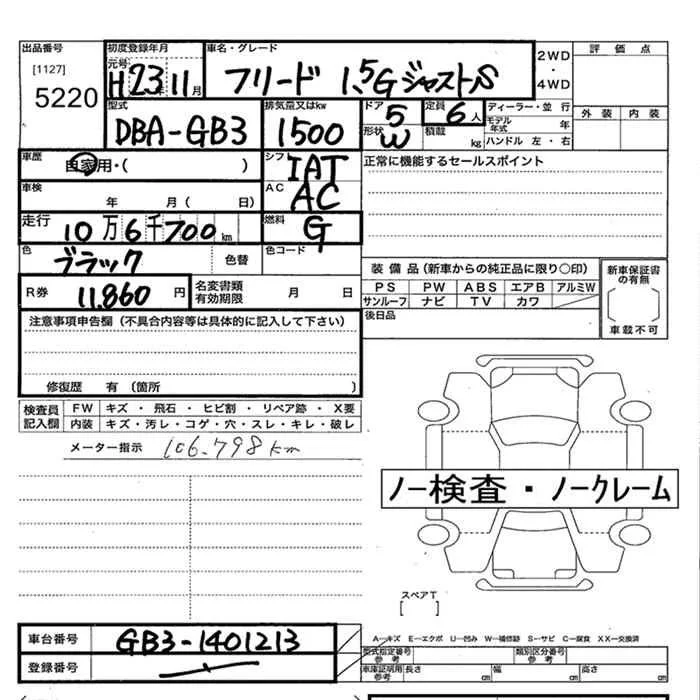 出品番号
[1127]
5220
初度登録年月
元号 H23年11月
車名・グレード
フリード 1.5GジャストS
2WD
・
4WD
評価点
外装 内装
型式
DBA-GB3
排気量又はkw
1500
ドア 5
形状 W
定員 6人
積載 kg
ディーラー・並行
モデル年式 年
ハンドル 左・右
車歴
自家用・( )
シフト
IAT
正常に機能するセールスポイント
車検
年 月( 日)
AC
AC
走行
10万6千700km
燃料
G
色
ブラック
色替
色コード
R券 11.860円
名変書類
有効期限 月 日
装備品(新車からの純正品に限り○印)
PS PW ABS エアB アルミW
サンルーフ ナビ TV カワ
新車保証書
の有無
車載不可
後日品
注意事項申告欄(不具合内容等は具体的に記入して下さい)
修復歴 有(箇所 )
検査員
記入欄
FW キズ・飛石・ヒビ割・リペア跡・X要
内装 キズ・汚レ・コゲ・穴・スレ・キレ・破レ
メーター指示 106.798km
ノー検査・ノークレーム
スペアT
[ ]
車台番号 GB3-1401213
登録番号
A―キズ E―エクボ U―凹み W―補修跡 S―サビ C―腐食 XX―交換済
型式指定番号
参考
類別区分番号
参考
車庫証明用
参考
長さ cm 幅 cm 高さ cm